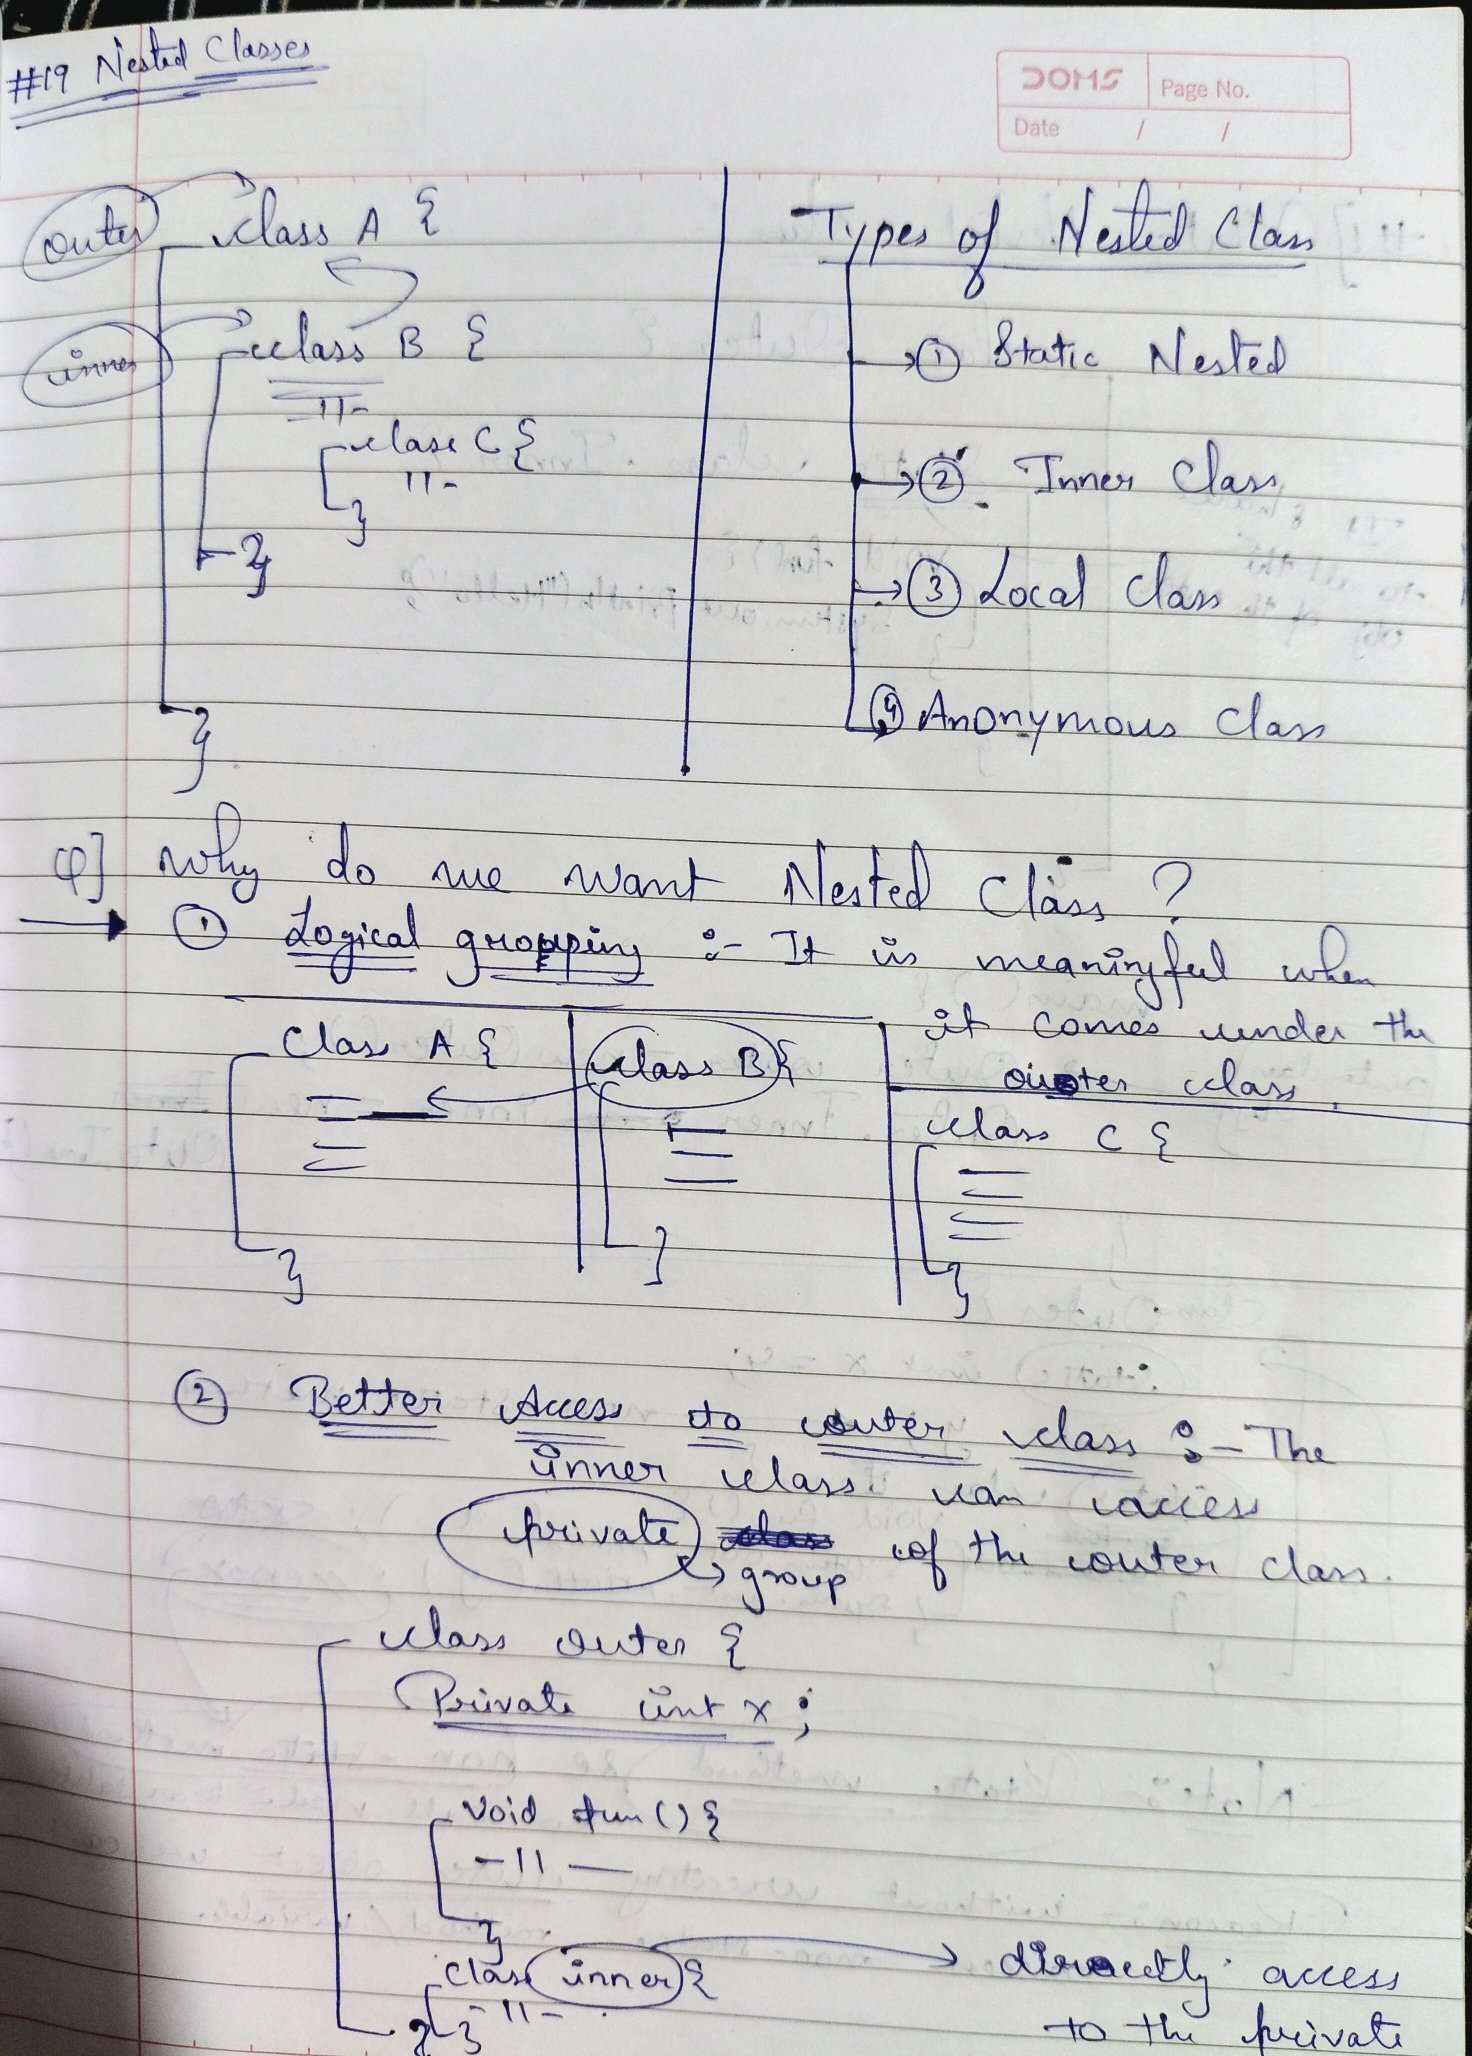 #19 Nested Classes
DOMS
Page No.
Date / /
outer
class A {
inner
class B {
-11-
class C {
11-
}
}
}
Types of Nested Class
① Static Nested
② Inner Class
③ Local Class
④ Anonymous Class
Q] Why do we want Nested Class ?
① Logical grouping :- It is meaningful when
it comes under the
outer class.
Class A {
}
class B {
}
class C {
}
② Better Access to outer class :- The
inner class can access
private of the outer class.
group
class Outer {
Private int x ;
void fun () {
-11-
}
class inner {
-11-
}
}
directly access
to the private